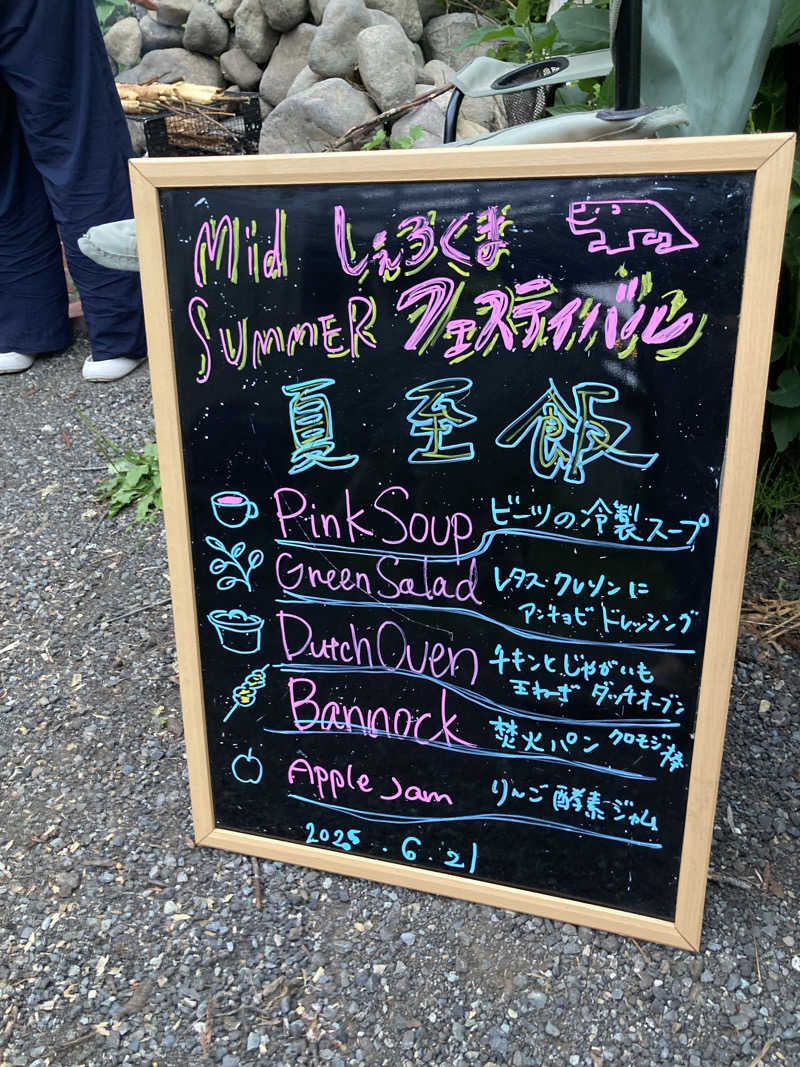 Mid しぇろくま
SUMMER フェスティバル
夏至飯
Pink Soup ビーツの冷製スープ
Green Salad レタス・クレソンに
アンチョビドレッシング
Dutch Oven チキンとじゃがいも
玉ねぎ ダッチオーブン
Bannock 焚火パン クロモジ棒
Apple Jam りんご酵素ジャム
2025.6.21